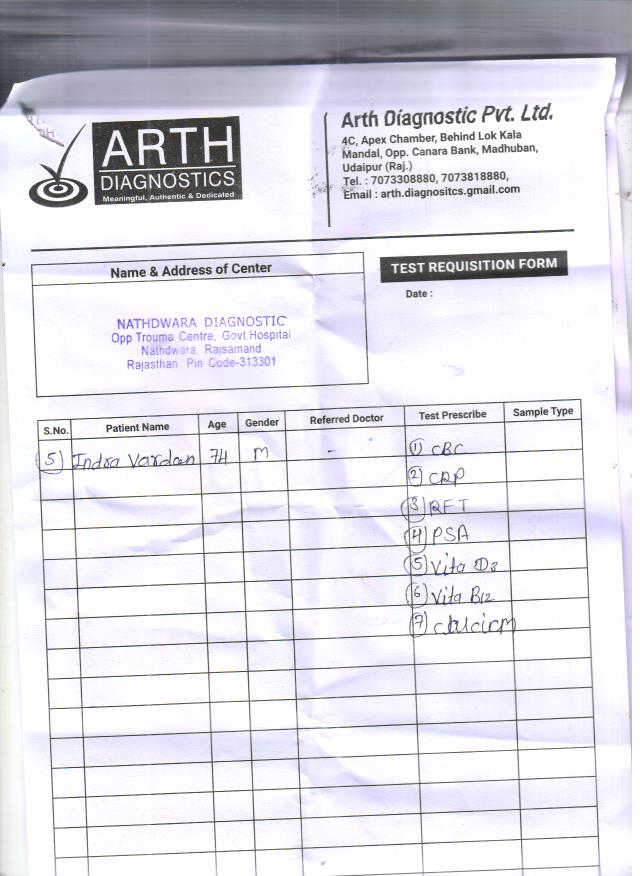 ARTH
DIAGNOSTICS
Meaningful, Authentic & Dedicated
Arth Diagnostic Pvt. Ltd.
4C, Apex Chamber, Behind Lok Kala
Mandal, Opp. Canara Bank, Madhuban,
Udaipur (Raj.)
Tel. : 7073308880, 7073818880,
Email : arth.diagnositcs.gmail.com
Name & Address of Center
NATHDWARA DIAGNOSTIC
Opp Trouma Centre, Govt.Hospital
Nathdwara, Rajsamand
Rajasthan Pin Code-313301
TEST REQUISITION FORM
Date :
S.No. Patient Name Age Gender Referred Doctor Test Prescribe Sample Type
5) Indra Vardan 74 M - 1) CBC
2) CRP
3) RFT
4) PSA
5) Vita D3
6) Vita B12
7)